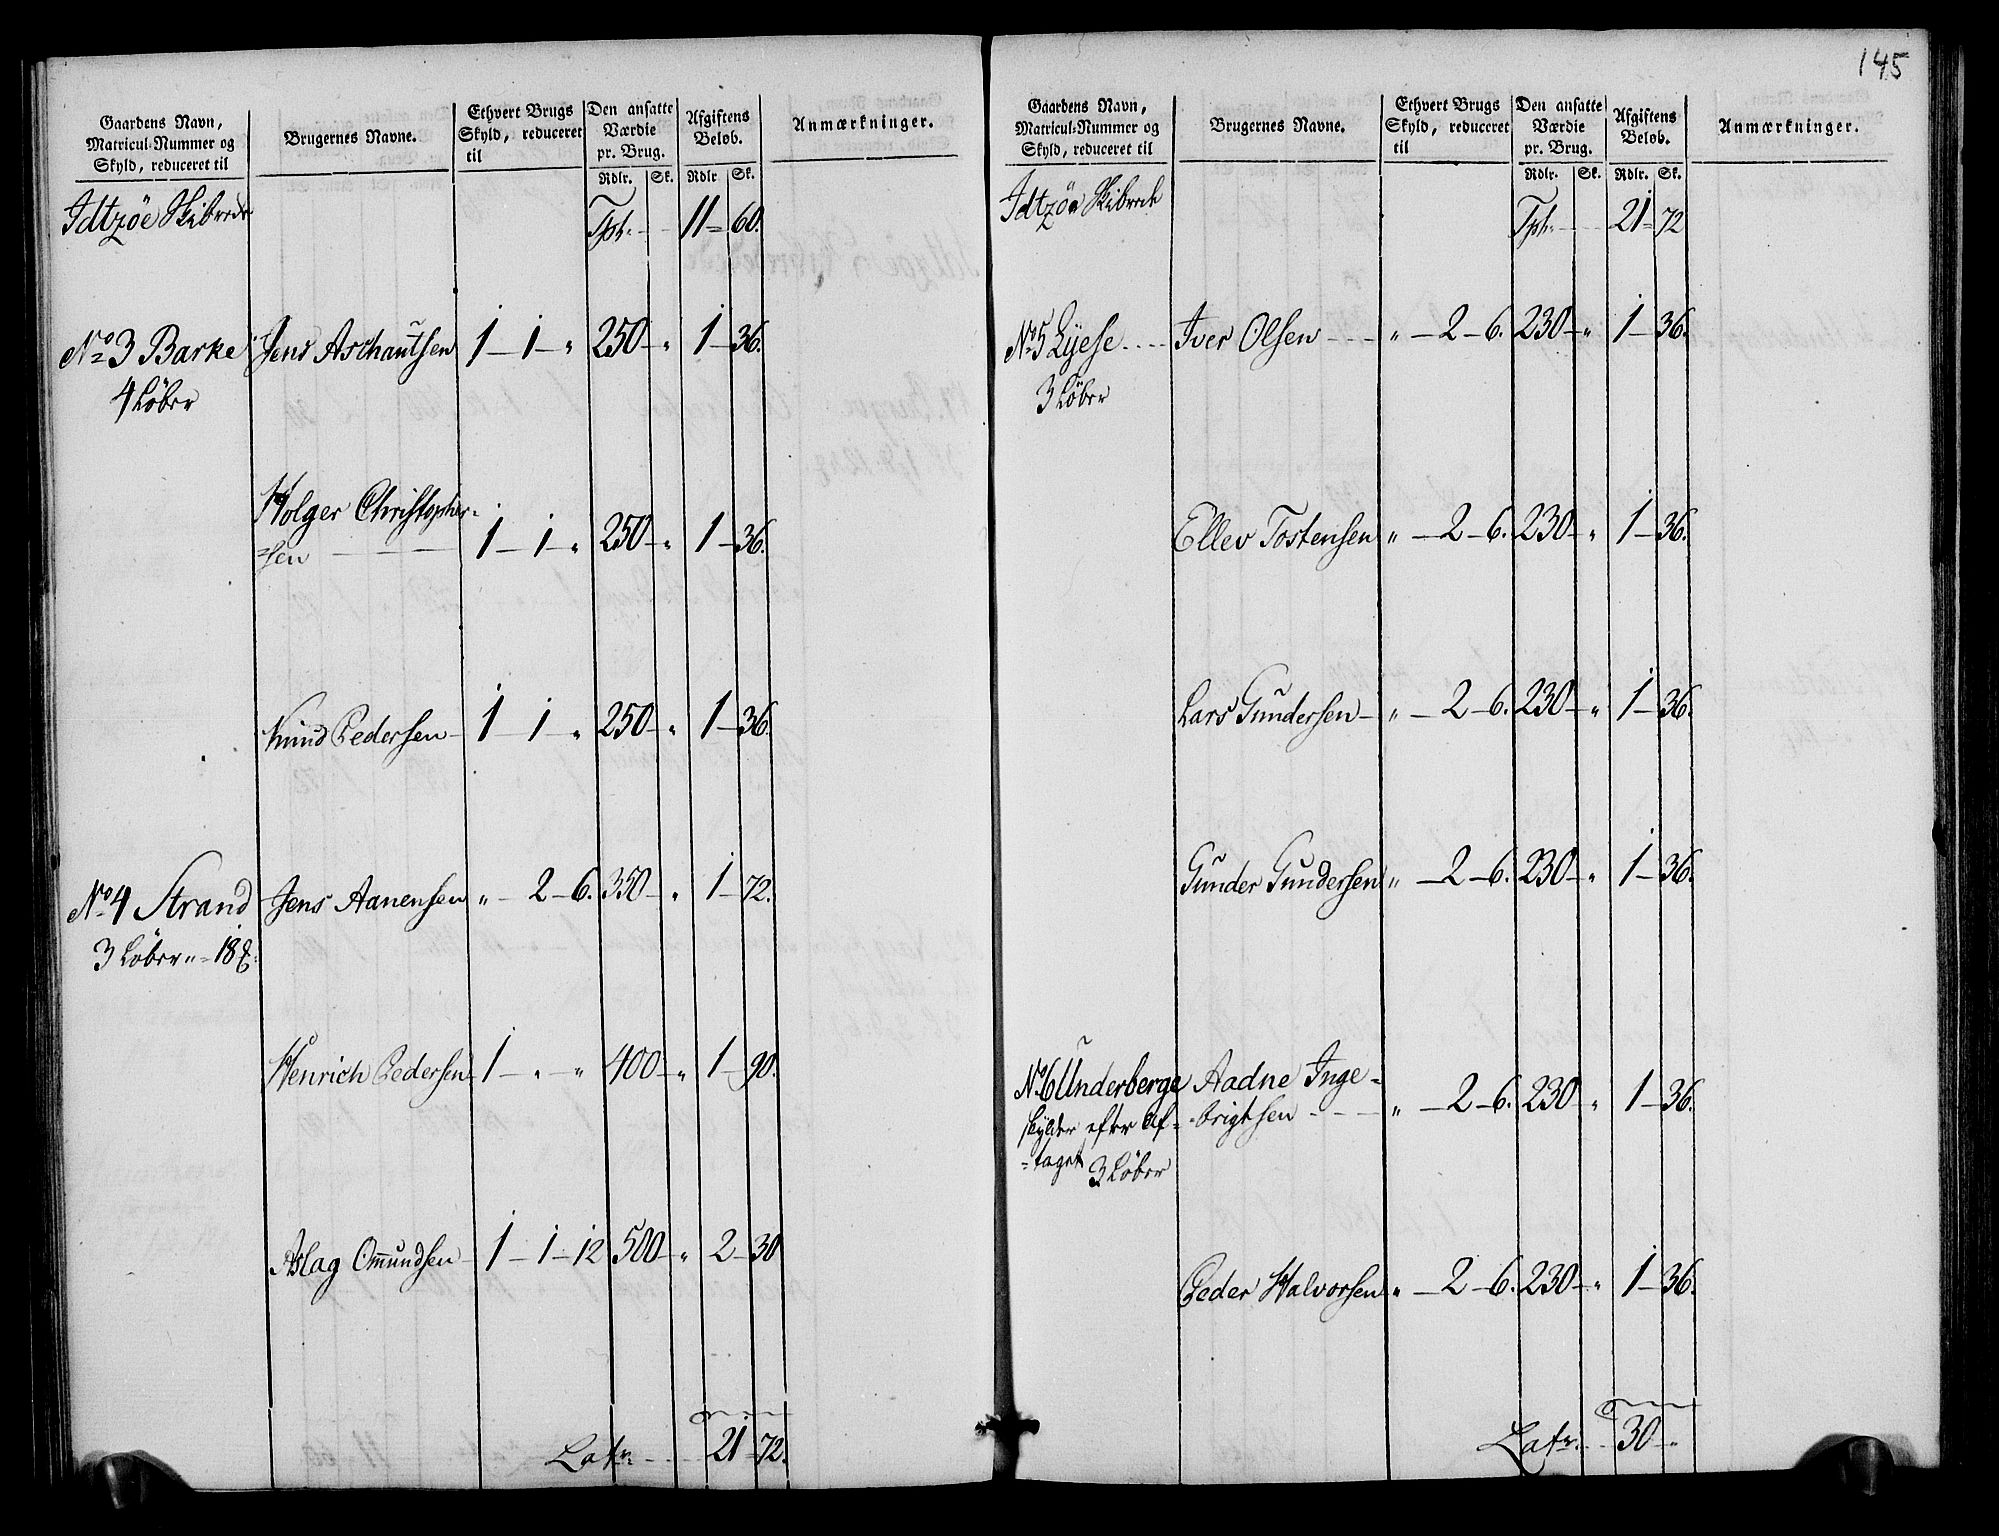 Gaardens Navn,
Matricul-Nummer og
Skyld, reduceret til
Brugernes Navne.
Ethvert Brugs
Skyld, reduceret
til
Den ansatte
Værdie
pr. Brug.
Rdlr. Sk.
Afgiftens
Beløb.
Rdlr Sk.
Anmærkninger.
Idtzöe Skibrede Tpt. 11 = 60.
No 3 Barke Jens Aschautsen 1 - 1 - " 250 - " 1 - 36.
4 Løber
Holger Christopher=
=sen 1 - 1 - " 250 - " 1 - 36.
Knud Pedersen 1 - 1 - " 250 - " 1 - 36.
No 4 Strand Jens Aanensen " - 2 - 6. 350 - " 1 - 72.
3 Løber " - 18
Henrich Pedersen 1 - " - " 400 - " 1 - 90.
Aslag Omundsen 1 - 1 - 12 500 - " 2 - 30
Latr. 21 = 72.
145
Gaardens Navn,
Matricul-Nummer og
Skyld, reduceret til
Brugernes Navne.
Ethvert Brugs
Skyld, reduceret
til
Den ansatte
Værdie
pr. Brug.
Rdlr. Sk.
Afgiftens
Beløb.
Rdlr. Sk.
Anmærkninger.
Idtzöe Skibrede Tpt. 21 = 72
No 5 Lyese Iver Olsen " - 2 - 6. 230 - " 1 - 36.
3 Løber
Ellev Tostensen " - 2 - 6. 230 - " 1 - 36.
Lars Gundersen " - 2 - 6. 230 - " 1 - 36.
Gunder Gundersen " - 2 - 6. 230 - " 1 - 36.
No 6 Underberge Aadne Inge=
skylder efter Af= brigtsen " - 2 - 6. 230 - " 1 - 36.
=taget 3 Løber
Peder Halvorsen " - 2 - 6. 230 - " 1 - 36.
Latr. 30 - "